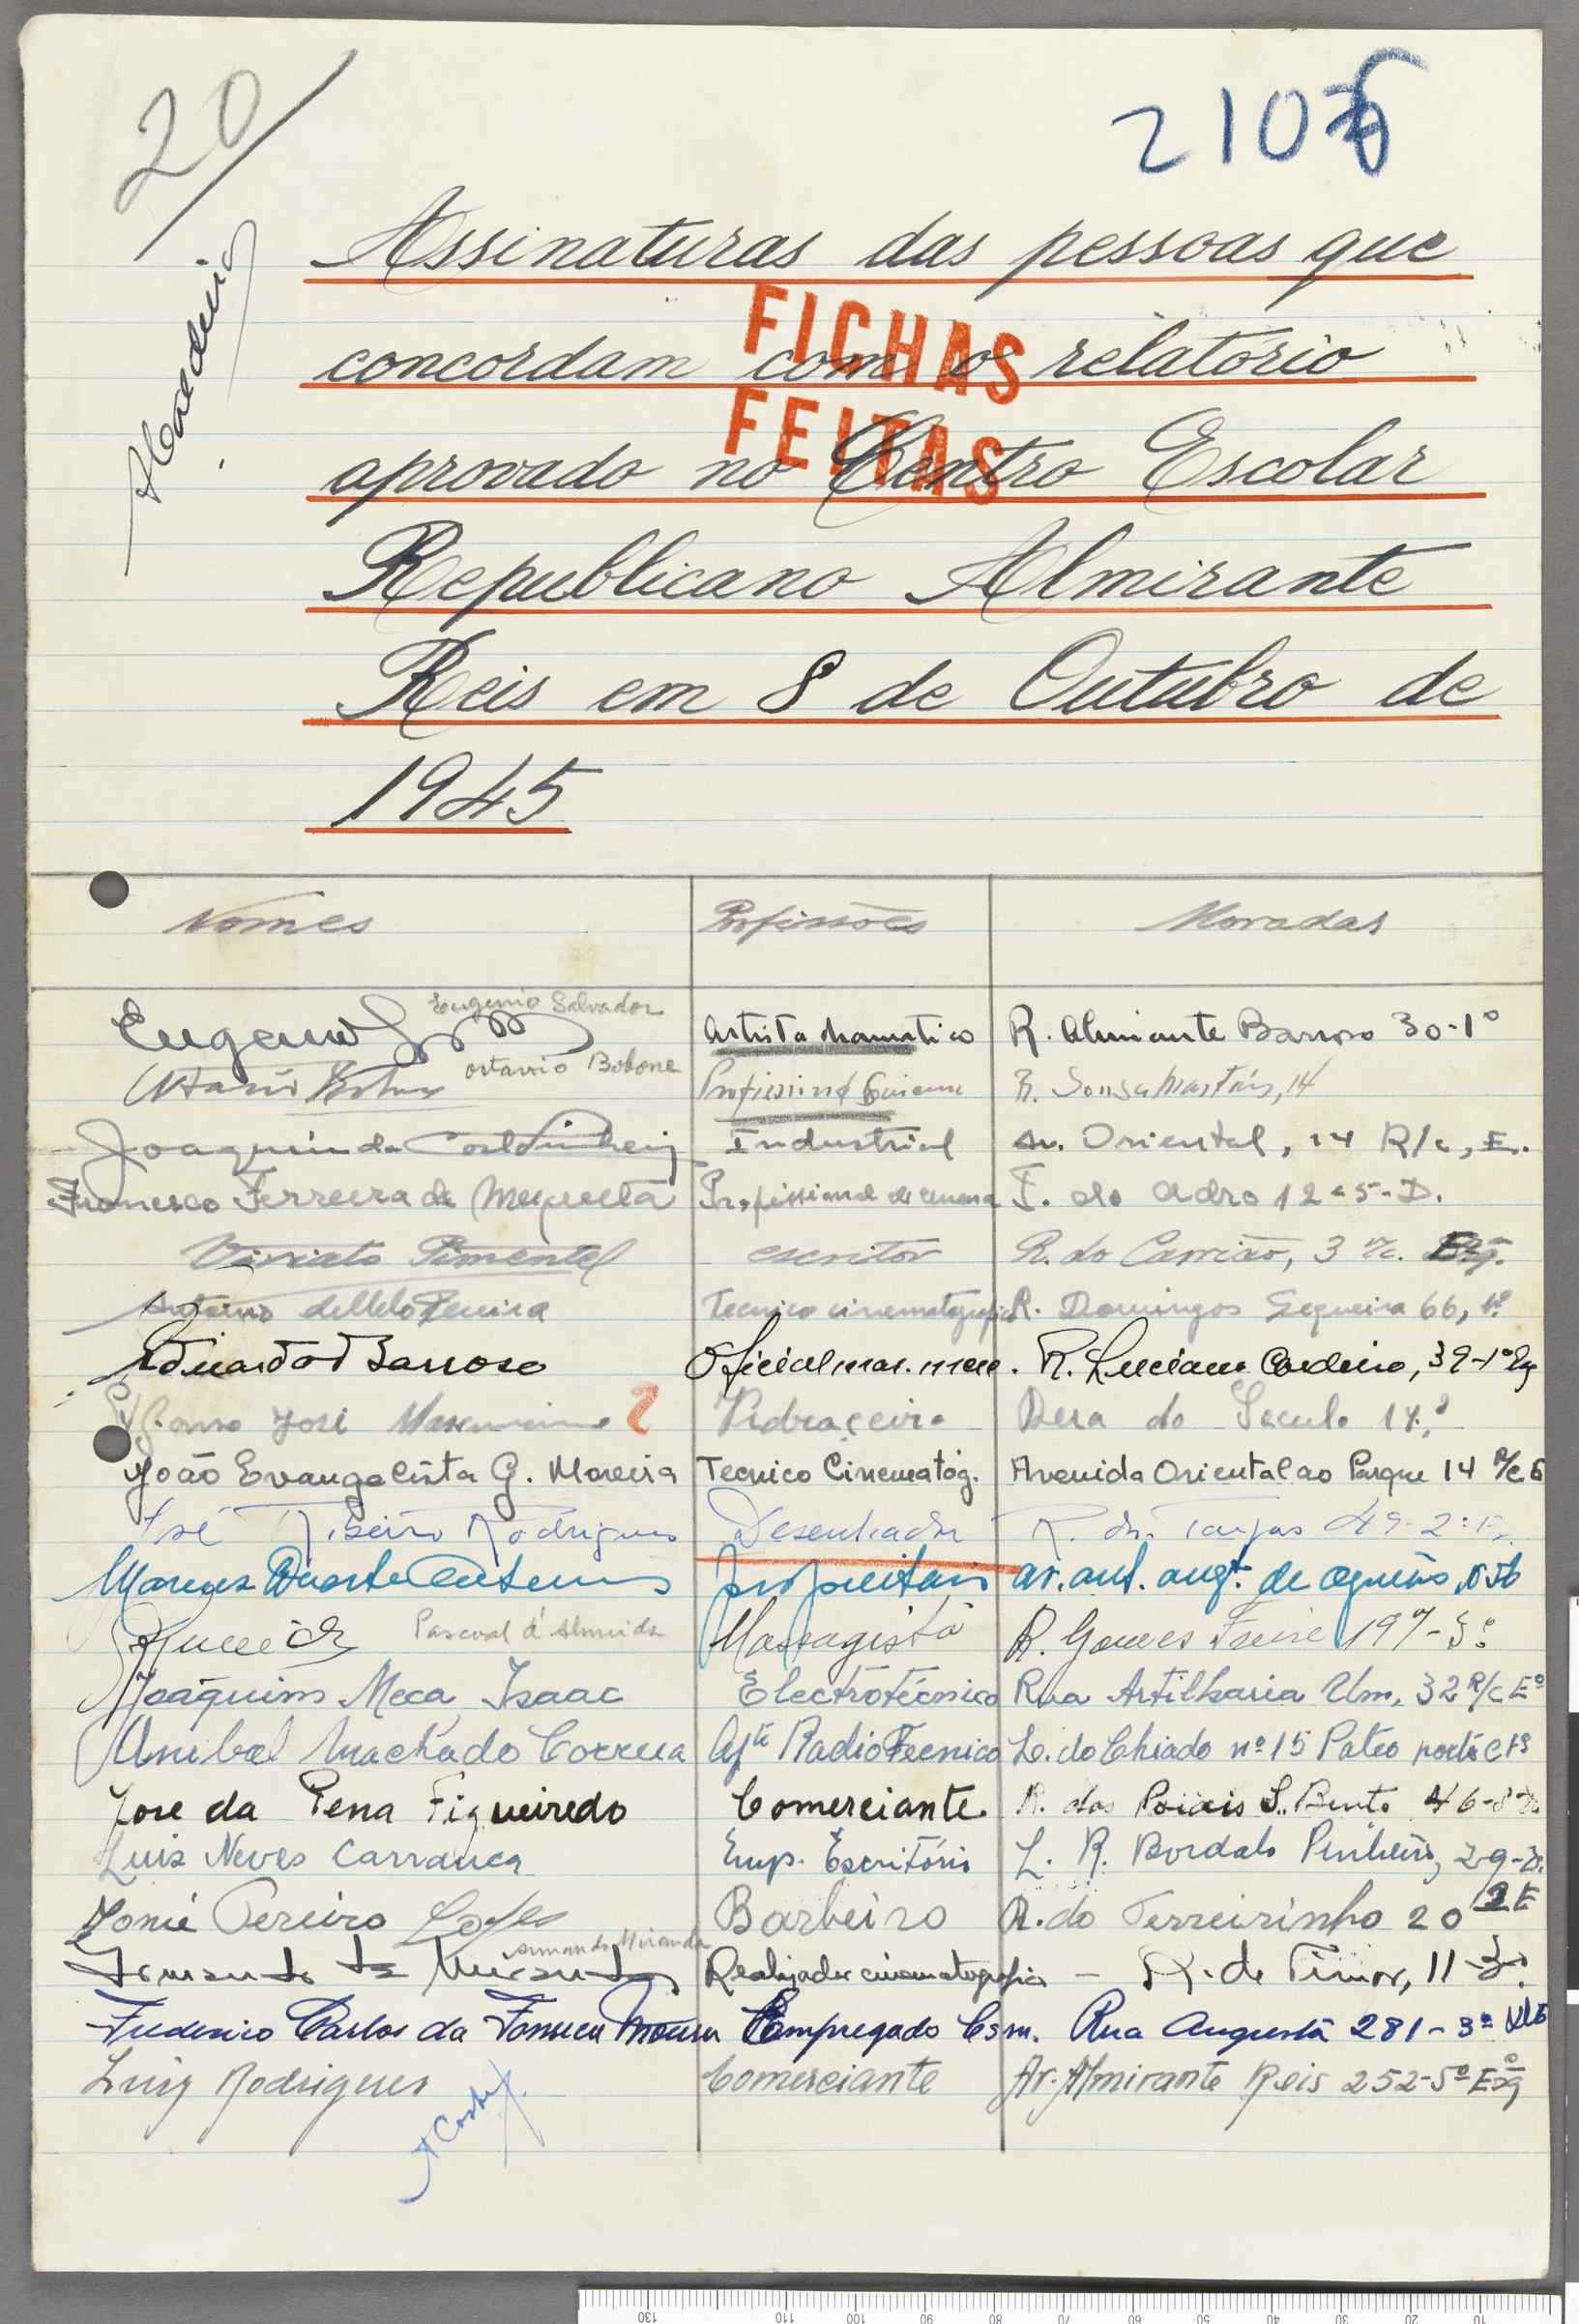 20
2106
Assinaturas das pessoas que
concordam com o relatório
FICHAS
FEITAS
aprovado no Centro Escolar
Republicano Almirante
Reis em 8 de Outubro de
1945
Nomes Profissões Moradas
Eugenio Eugenio Salvador Artista dramatico R. Almirante Barroso 30-1º
Octavio Bobone Octavio Bobone Profissional Cinema R. Sousa Martins, 14
Joaquim da Costa Pinheiro Industrial Av. Oriental, 14 R/c, E.
Francisco Ferreira da Mesquita Profissional de cinema T. do Adro 12
Viriato Pimentel escritor R. do Carrião, 3 r/c. Esq.
Antonio de Melo Pereira Tecnico cinematografico R. Domingos Sequeira 66, 1º
Eduardo Barroso Oficial mar. merc. R. Luciano Cordeiro, 39-1º Eq
José Vidraceiro do Seculo 14
João Evangelista G. Moreira Tecnico Cinematóg. Avenida Oriental ao Parque 14 R/c E
José Ribeiro Rodrigues Desenhador R. das Taipas 49-2º E.
Marques Duarte proprietario av. ant. augt. de aguiar,
Pascoal d'Almeida Massagista R. Gomes Freire 197-3º
Joaquim Meca Isaac Electrotécnico Rua Artilharia Um, 32 R/c Eº
Anibal Machado Correia Ajte Radio Tecnico L. do Chiado nº 15 Pateo
Jose da Pena Figueiredo Comerciante R. dos Poiais S. Bento 46
Luis Neves Carranca Emp. Escritório L. R. Bordalo Pinheiro, 29
Tomé Pereiro Lopes Barbeiro R. do Terreirinho 20 2 E
Armando de Miranda Armando Miranda Realizador cinematografico - R. de Timor, 11-3º
Frederico Carlos da Fonseca Moura Empregado Com. Rua Augusta 281-3º
Luiz Rodrigues Comerciante Av. Almirante Reis 252-5º Esq
A Costa